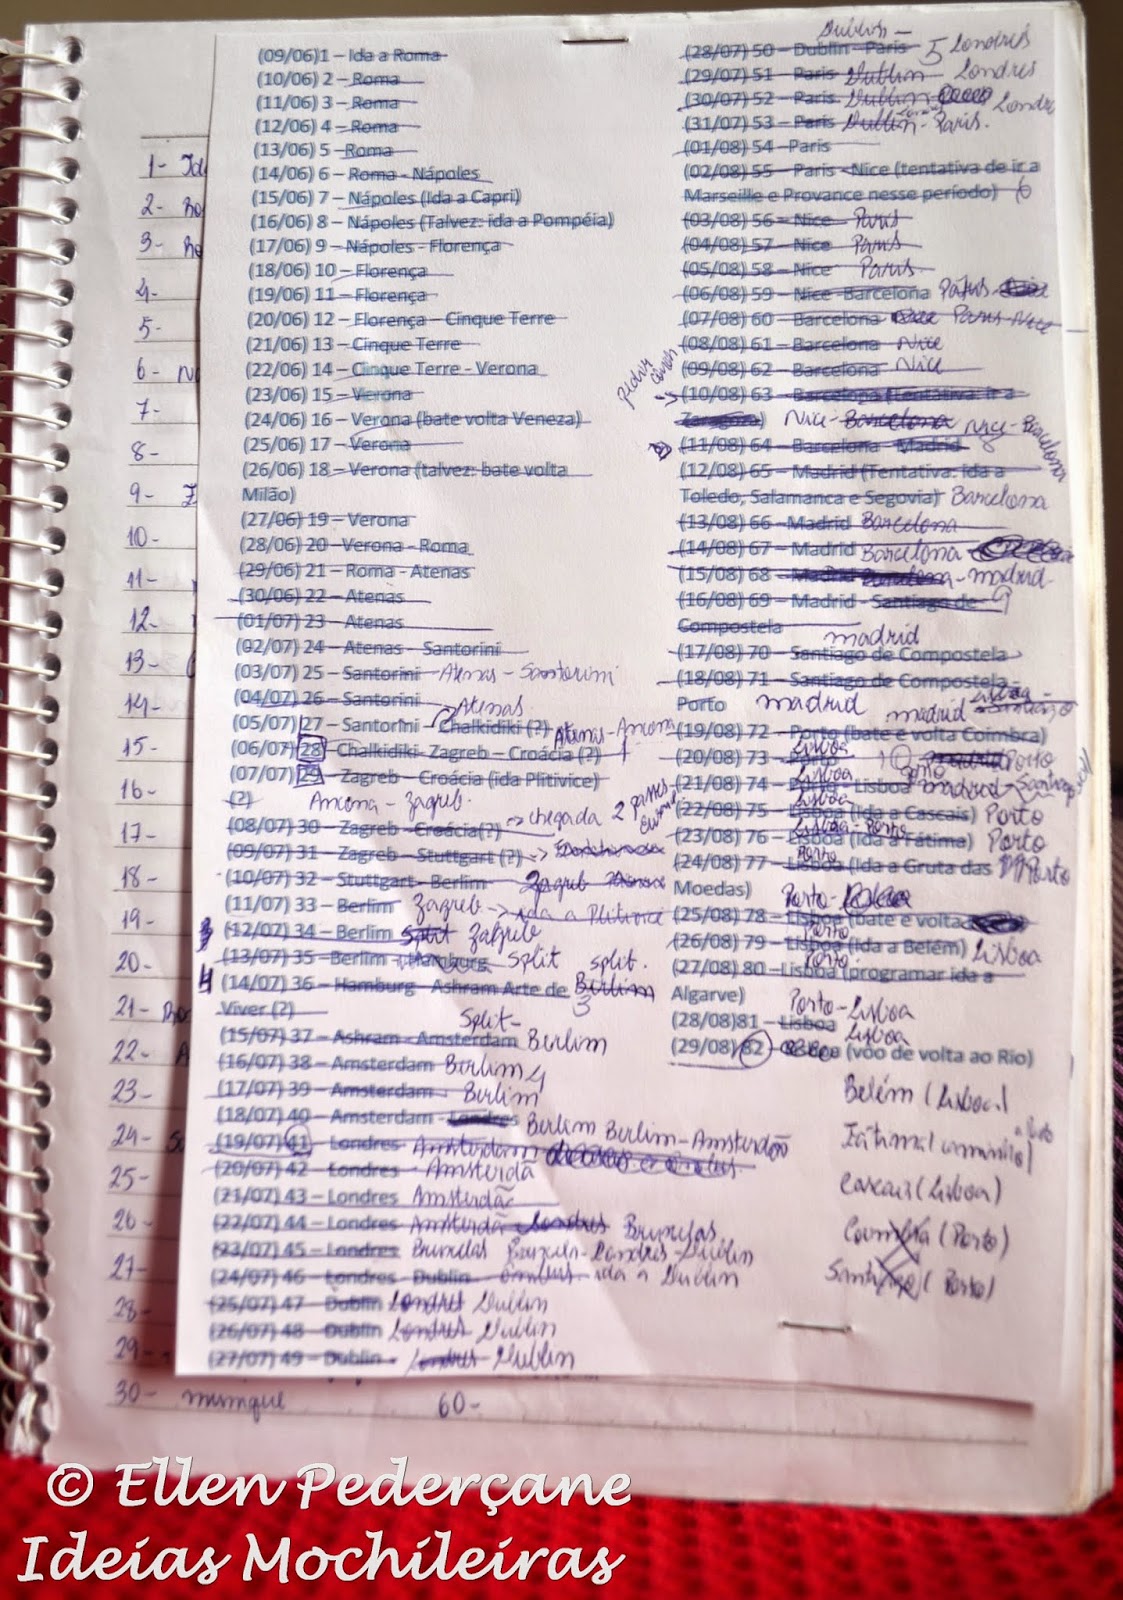 1- 
2- Ro
3- Ro
4-
5-
6- 
7-
8-
9-
10-
11-
12-
13-
14-
15-
16-
17-
18-
19-
20-
21-
22-
23-
24-
25-
26-
27-
28-
29-
30- 
60-
(09/06)1 – Ida a Roma
(10/06) 2 – Roma
(11/06) 3 – Roma
(12/06) 4 – Roma
(13/06) 5 – Roma
(14/06) 6 – Roma - Nápoles
(15/06) 7 – Nápoles (Ida a Capri)
(16/06) 8 – Nápoles (Talvez: ida a Pompéia)
(17/06) 9 – Nápoles - Florença
(18/06) 10 – Florença
(19/06) 11 – Florença
(20/06) 12 – Florença – Cinque Terre
(21/06) 13 – Cinque Terre
(22/06) 14 – Cinque Terre - Verona
(23/06) 15 – Verona
(24/06) 16 – Verona (bate volta Veneza)
(25/06) 17 – Verona
(26/06) 18 – Verona (talvez: bate volta
Milão)
(27/06) 19 – Verona
(28/06) 20 – Verona - Roma
(29/06) 21 – Roma - Atenas
(30/06) 22 – Atenas
(01/07) 23 – Atenas
(02/07) 24 – Atenas - Santorini
(03/07) 25 – Santorini Atenas - Santorini
(04/07) 26 – Santorini
Atenas
(05/07) 27 – Santorini - Chalkidiki (?) Atenas - Ancona
(06/07) 28 – Chalkidiki- Zagreb – Croácia (?)
(07/07) 29 – Zagreb – Croácia (ida Plitivice)
(?) Ancona - Zagreb
(08/07) 30 – Zagreb –Croácia(?) chegada 2
(09/07) 31 – Zagreb – Stuttgart (?)
(10/07) 32 – Stuttgart - Berlim Zagreb
(11/07) 33 – Berlim Zagreb ida a Plitivice
3 (12/07) 34 – Berlim Split Zagreb
(13/07) 35 – Berlim - Hamburg Split split.
4 (14/07) 36 – Hamburg – Ashram Arte de Berlim
Viver (?) 3
Split-
(15/07) 37 – Ashram - Amsterdam Berlim
(16/07) 38 – Amsterdam Berlim 4
(17/07) 39 – Amsterdam Berlim
(18/07) 40 – Amsterdam - Londres Berlim Berlim-Amsterdão
(19/07) 41 – Londres Amsterdam
(20/07) 42 – Londres Amsterdã
(21/07) 43 – Londres Amsterdã
(22/07) 44 – Londres Amsterdã Londres Bruxelas
(23/07) 45 – Londres Bruxelas Londres-Dublin
(24/07) 46 – Londres - Dublin ida a Dublin
(25/07) 47 – Dublin Londres Dublin
(26/07) 48 – Dublin Londres Dublin
(27/07) 49 – Dublin Londres Dublin
Dublin -
(28/07) 50 – Dublin - Paris 5 Londres
(29/07) 51 – Paris Dublin Londres
(30/07) 52 – Paris Dublin
(31/07) 53 – Paris Dublin - Paris.
(01/08) 54 –Paris
(02/08) 55 – Paris - Nice (tentativa de ir a
Marseille e Provance nesse período) 6
(03/08) 56 – Nice Paris
(04/08) 57 – Nice Paris
(05/08) 58 – Nice Paris
(06/08) 59 – Nice -Barcelona Paris
(07/08) 60 – Barcelona Paris-Nice
(08/08) 61 – Barcelona Nice
(09/08) 62 – Barcelona Nice
(10/08) 63 – Barcelona (tentativa: ir a
Zaragoza) Nice - Barcelona Barcelona
(11/08) 64 – Barcelona - Madrid
(12/08) 65 – Madrid (Tentativa: ida a
Toledo, Salamanca e Segovia) Barcelona
(13/08) 66 – Madrid Barcelona
(14/08) 67 – Madrid Barcelona
(15/08) 68 – Madrid Barcelona - madrid
(16/08) 69 – Madrid - Santiago de
Compostela
madrid
(17/08) 70 – Santiago de Compostela
(18/08) 71 – Santiago de Compostela -
Porto madrid madrid
(19/08) 72 – Porto (bate e volta Coimbra)
Lisboa
(20/08) 73 – Porto madrid Porto
Lisboa
(21/08) 74 – Porto - Lisboa madrid
Lisboa
(22/08) 75 – Lisboa (ida a Cascais) Porto
Lisboa - Porto
(23/08) 76 – Lisboa (ida a Fátima) Porto
Porto
(24/08) 77 – Lisboa (Ida a Gruta das Porto
Moedas) Porto-
(25/08) 78 – Lisboa (bate e volta
Porto
(26/08) 79 – Lisboa (Ida a Belém) Lisboa
Porto
(27/08) 80 – Lisboa (programar ida a
Algarve) Porto-Lisboa
(28/08)81 – Lisboa Lisboa
(29/08) 82 – (vôo de volta ao Rio)
Belém (Lisboa)
Fátima
Cascais (Lisboa)
Coimbra (Porto)
Santiago (Porto)
© Ellen Pederçane
Ideias Mochileiras